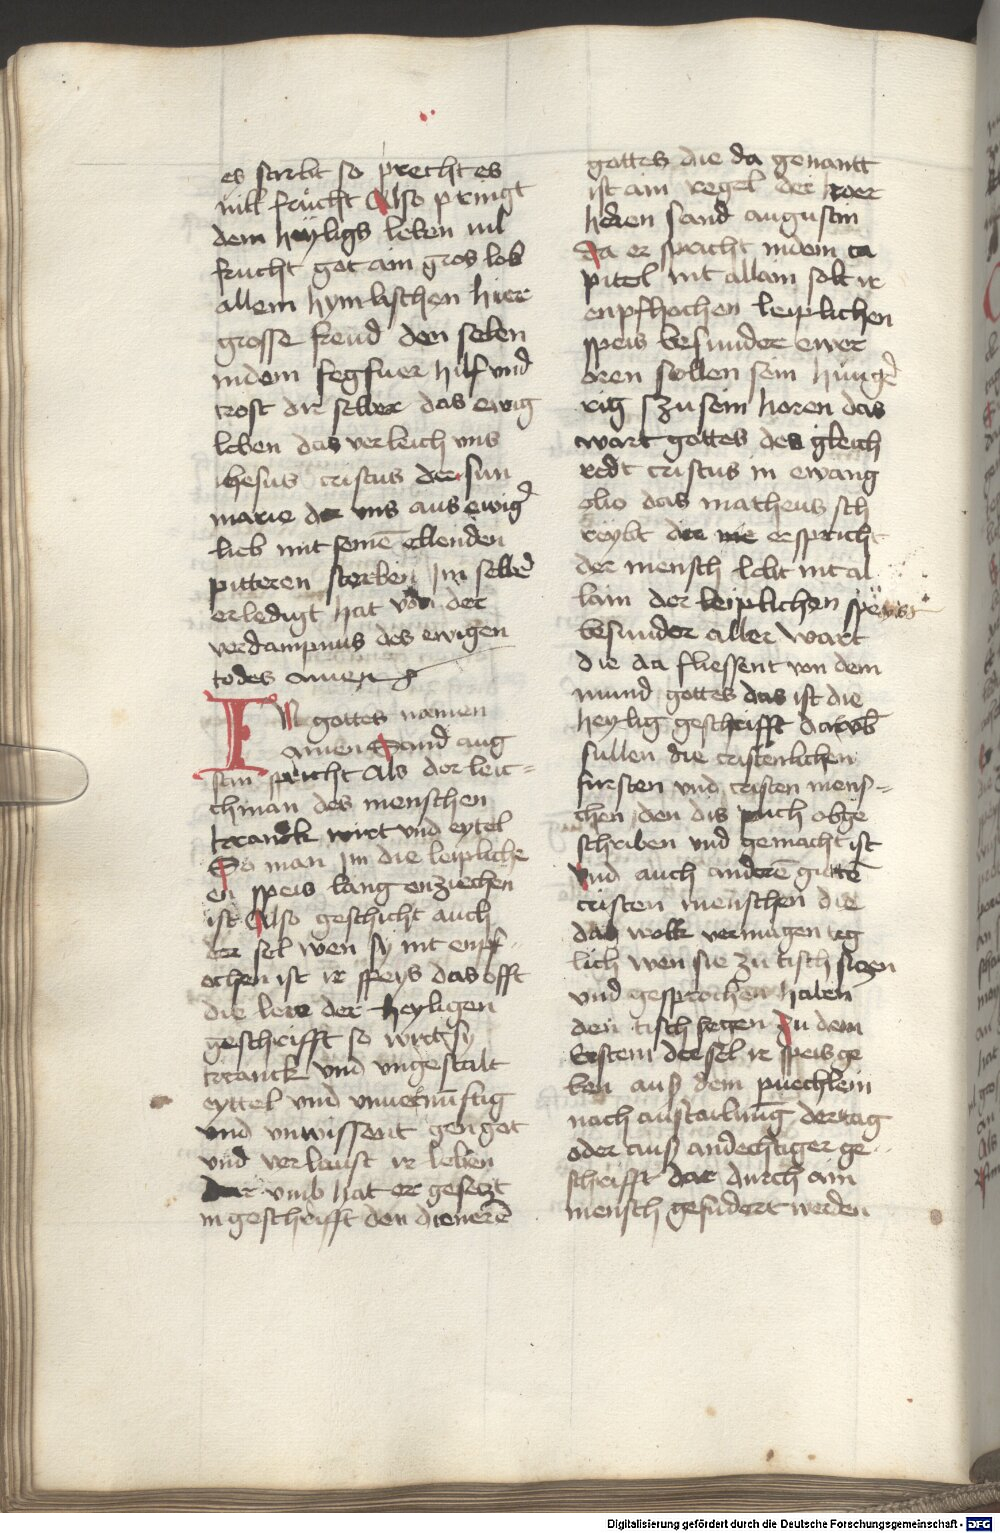 es stirbt so precht es
vill frücht Also pringt
dem heyligs leben vil
frucht got am gros lob
allem hymlischen hier
grosse freud den selen
indem fegfuer hilf und
trost dir selber das ewig
leben das verleich uns
ihesus cristus der sun
marie der uns aus ewiger
lieb mit seinē ellenden
pitteren sterben im selber
erledigt hat von der
verdampnus des ewigen
todes amen
IN gottes namen
amen Sand aug
stin spricht als der leic=
chman des menschen
kranck wirt und eytel
So man im die leipliche
en speis lang enziechen
ist Also geschicht auch
der sel wen sy nit enpf
ochen ist ir speys das offt
die lere der heyligen
geschrifft so wirt sy
kranck und ungestalt
eyttel und unvernūftig
und unwissent gen got
und verleust ir leben
Dar umb hat er gesetzt
in geschrifft den dienerē
gottes die da genantt
ist ain regel der kor
heren sand augustin
da er spricht indem ca
pitel nit allain solt ir
enpfhochen leiplichen
speis besunder ewer
oren sullen sein hunge
rig zu sein horen das
wart gottes des gleich
redt cristus in ewang
elio das matheus sch
reybt da er spricht
der mensch lebt nit al
lain der leiplichen speis
besunder aller wart
die da fliessent von dem
mund gottes das ist die
heylig geschrifft darüb
sullen die cristenlichen
fursten und cristen mens=
chen den dis puch obge
schriben und gemacht ist
Und auch anderē guttē
cristen menschen die
das wolk vermugen teg
lich wen sie zu tisch siczen
und gesprochen haben
den tisch segen Zu dem
ersten der sel ir speis ge
ben auß dem puechlein
nach austailung der tag
oder auß andechtiger ge
schrifft dar durch ain
mensch gefudert werden
Digitalisierung gefördert durch die Deutsche Forschungsgemeinschaft - DFG